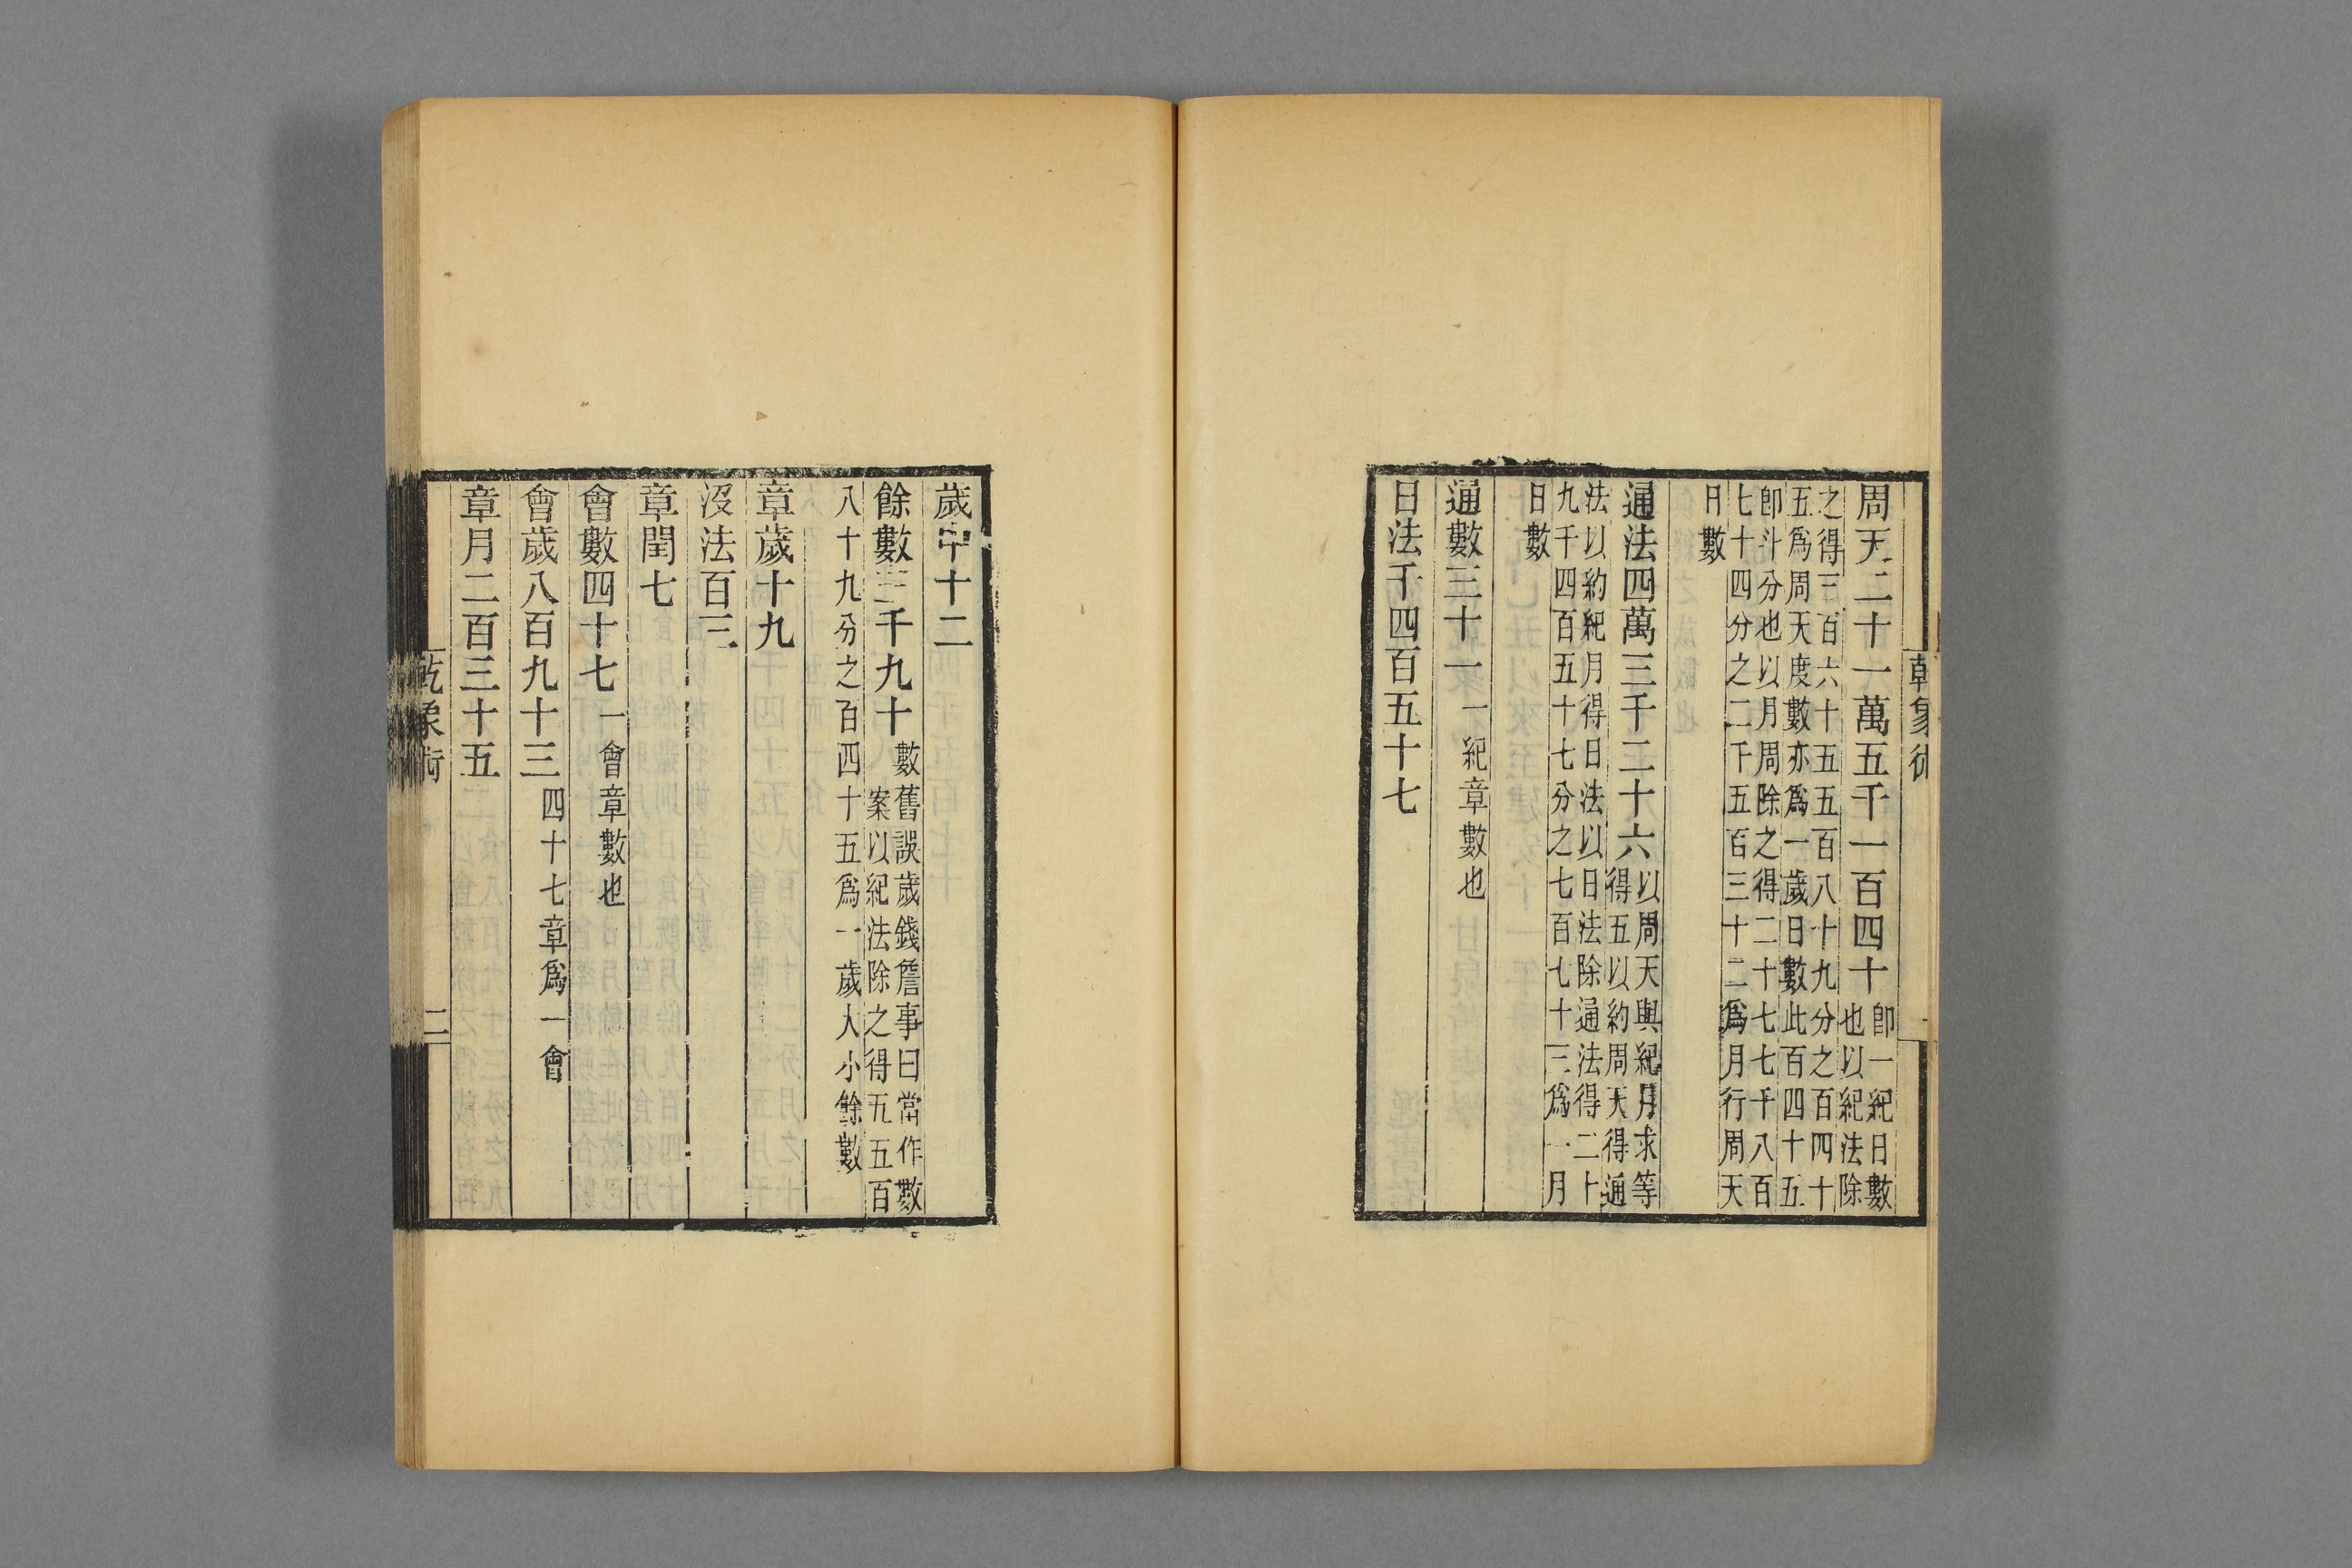 乾象術
周天二十一萬五千一百四十卽一紀日數
也以紀法除
之得三百六十五五百八十九分之百四十
五爲周天度數亦爲一歲日數此百四十五
卽斗分也以月周除之得二十七七千八百
七十四分之二千五百三十二爲月行周天
日數
通法四萬三千二十六以周天與紀月求等
得五以約周天得通
法以約紀月得日法以日法除通法得二十
九千四百五十七分之七百七十三爲一月
日數
通數三十一一紀章數也
日法千四百五十七
歲中十二
餘數三千九十數舊誤歲錢詹事曰當作數
案以紀法除之得五五百
八十九分之百四十五爲一歲大小餘數
章歲十九
沒法百三
章閏七
會數四十七一會章數也
會歲八百九十三四十七章爲一會
章月二百三十五
乾象術
二